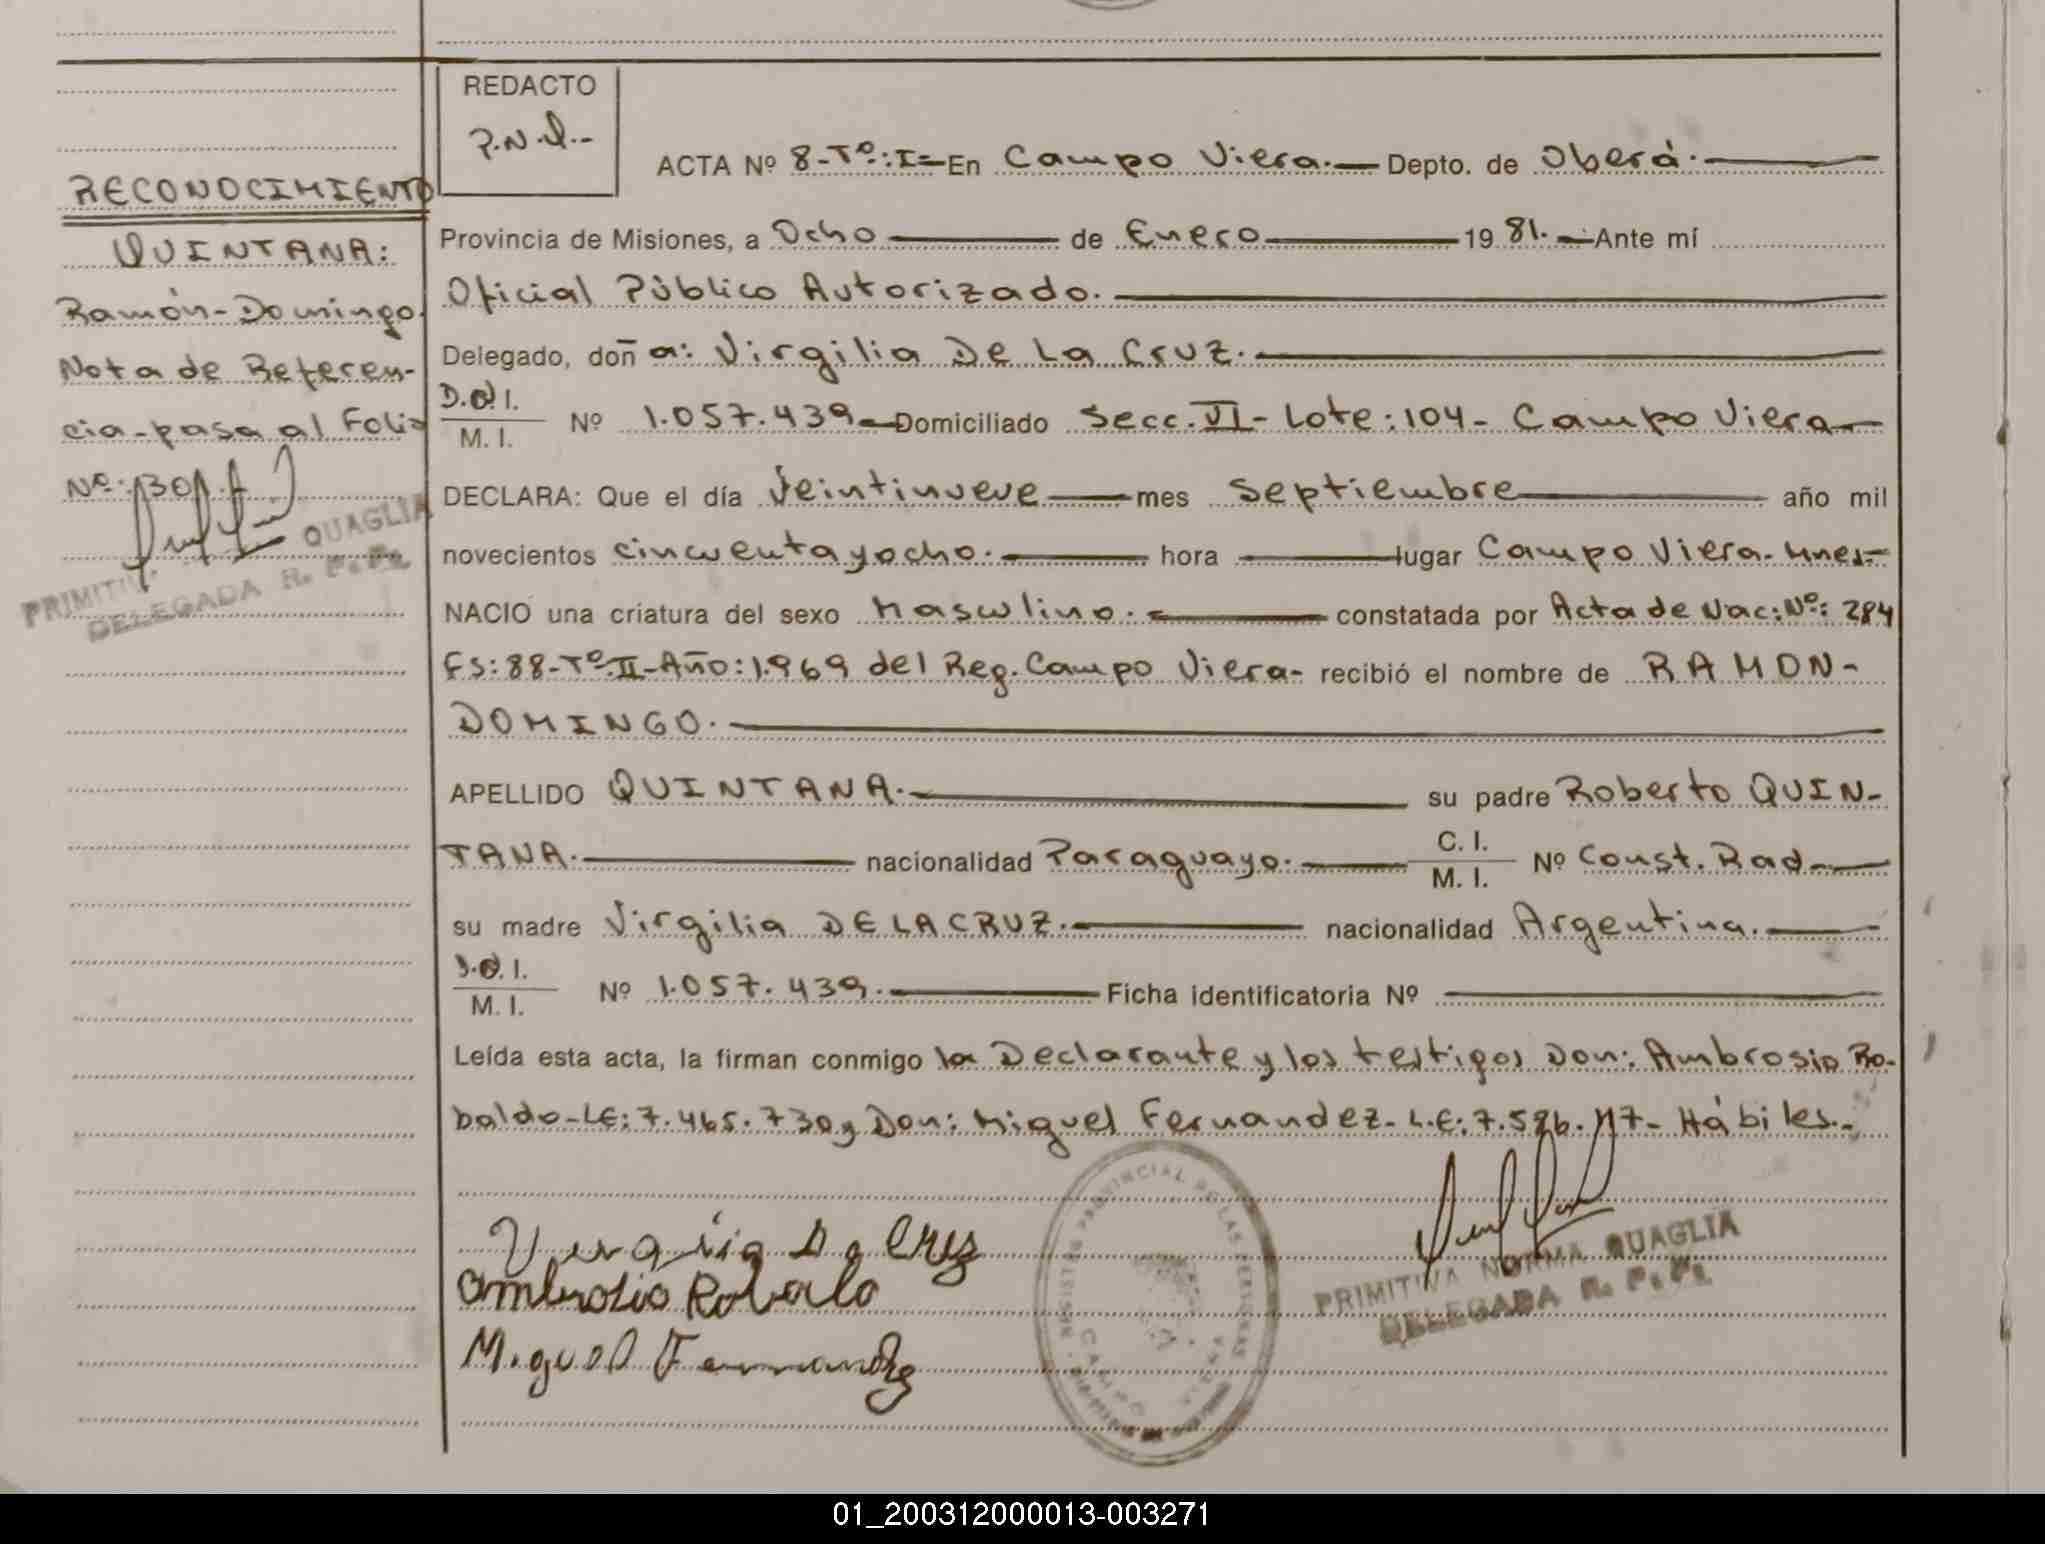 REDACTO
P.N.Q.-
ACTA Nº 8-Tº:I= En Campo Viera.- Depto. de Oberá.
Provincia de Misiones, a Ocho de Enero 1981.- Ante mí
Oficial Público Autorizado.
Delegado, doña: Virgilia De La Cruz.
D.N.I.
M. I. Nº 1.057.439 Domiciliado Secc. VI- Lote: 104- Campo Viera
DECLARA: Que el día Veintinueve mes Septiembre año mil
novecientos cincuenta y ocho. hora lugar Campo Viera-Mnes-
NACIO una criatura del sexo Masculino. constatada por Acta de Nac: Nº: 284
Fs: 88-Tº:II-Año: 1.969 del Reg. Campo Viera- recibió el nombre de RAMON-
DOMINGO.
APELLIDO QUINTANA. su padre Roberto QUIN-
TANA. nacionalidad Paraguayo. C. I.
M. I. Nº Const. Rad
su madre Virgilia DE LA CRUZ. nacionalidad Argentina.
D.N.I.
M. I. Nº 1.057.439. Ficha identificatoria Nº
Leída esta acta, la firman conmigo la Declarante y los testigos Don: Ambrosio Ro-
baldo-LE: 7.465.730 y Don: Miguel Fernandez- L.E: 7.526.117- Hábiles.-
Ambrosio Robaldo
Miguel Fernandez
REGISTRO PROVINCIAL DE LAS PERSONAS
CAMPO VIERA
PRIMITIVA NORMA QUAGLIA
DELEGADA R. P. P.
RECONOCIMIENTO
QUINTANA:
Ramón-Domingo
Nota de Referen-
cia-pasa al Folio
Nº: 30
PRIMITIV QUAGLIA
DELEGADA R. P. P.
01_200312000013-003271